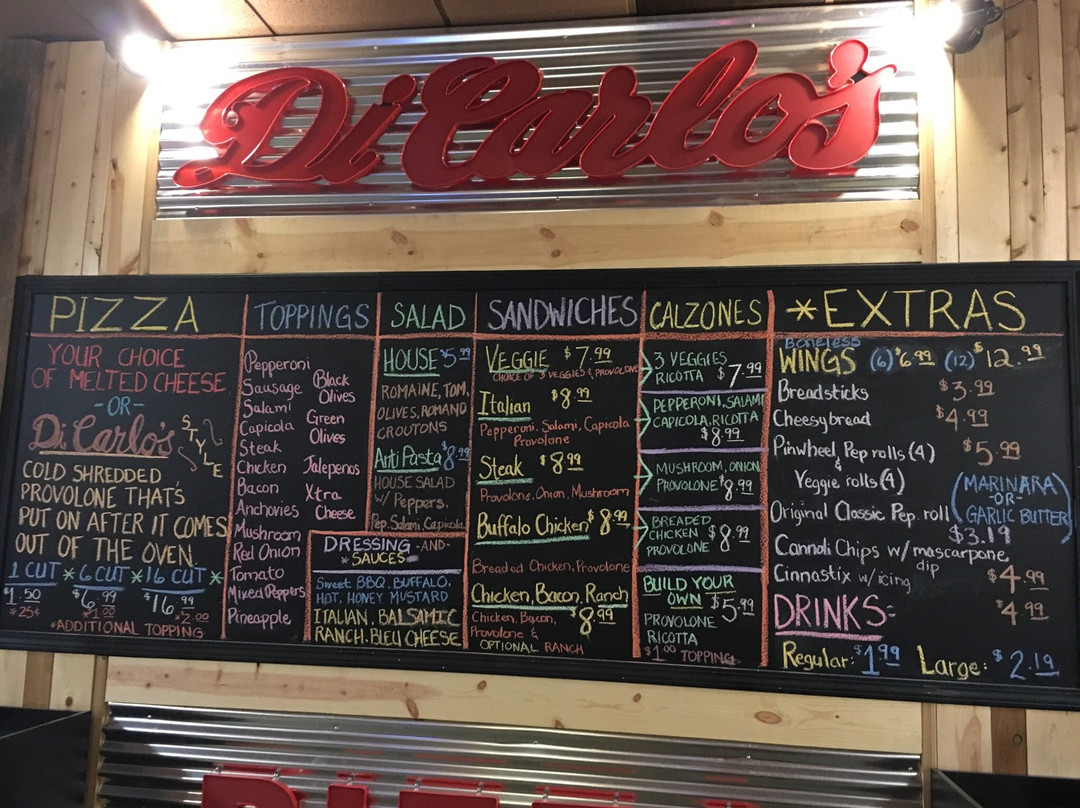 DiCarlo's
PIZZA
YOUR CHOICE
OF MELTED CHEESE
-OR-
DiCarlo's
STYLE
COLD SHREDDED
PROVOLONE THAT'S
PUT ON AFTER IT COMES
OUT OF THE OVEN.
1 CUT * 6 CUT * 16 CUT *
$1.50 $6.99 $16.99
*25¢ *$1.00 *$2.00
*ADDITIONAL TOPPING
TOPPINGS
Pepperoni
Sausage
Salami
Capicola
Steak
Chicken
Bacon
Anchovies
Mushroom
Red Onion
Tomato
Mixed Peppers
Pineapple
Black
Olives
Green
Olives
Jalepenos
Xtra
Cheese
SALAD
HOUSE $5.99
ROMAINE, TOM,
OLIVES, ROMANO
CROUTONS
AntiPasta $8.99
HOUSE SALAD
w/ Peppers,
Pep, Salami, Capicola
DRESSING -AND-
* SAUCES *
Sweet BBQ, BUFFALO,
HOT, HONEY MUSTARD
ITALIAN, BALSAMIC
RANCH, BLEU CHEESE
SANDWICHES
VEGGIE $7.99
CHOICE OF 3 VEGGIES & PROVOLONE
Italian $8.99
Pepperoni, Salami, Capicola
Provolone
Steak $8.99
Provolone, Onion, Mushroom
Buffalo Chicken $8.99
Breaded Chicken, Provolone
Chicken, Bacon, Ranch
$8.99
Chicken, Bacon,
Provolone &
OPTIONAL RANCH
CALZONES
3 VEGGIES
RICOTTA $7.99
PEPPERONI, SALAMI
CAPICOLA, RICOTTA
$8.99
MUSHROOM, ONION
PROVOLONE $8.99
BREADED
CHICKEN $8.99
PROVOLONE
BUILD YOUR
OWN $5.99
PROVOLONE
RICOTTA
$1.00 TOPPING
*EXTRAS
Boneless
WINGS (6) $6.99 (12) $12.99
Breadsticks $3.99
Cheesybread $4.99
Pinwheel Pep rolls (4) $5.99
&
Veggie rolls (4)
(MARINARA
-OR-
GARLIC BUTTER)
Original Classic Pep. roll
$3.19
Cannoli Chips w/ mascarpone
dip $4.99
Cinnastix w/icing $4.99
DRINKS-
Regular: $1.99 Large: $2.19